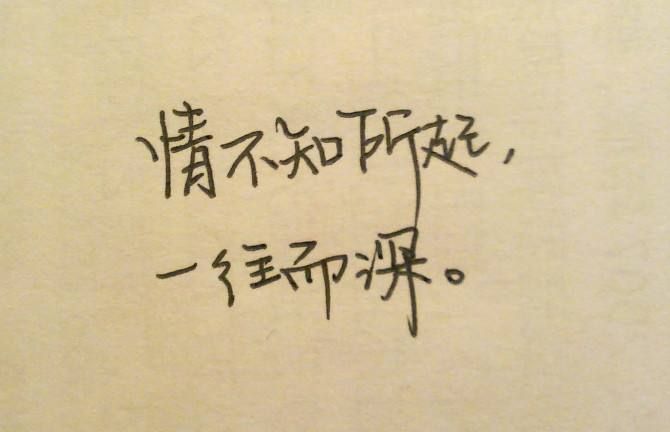 情不知所起,
一往而深。